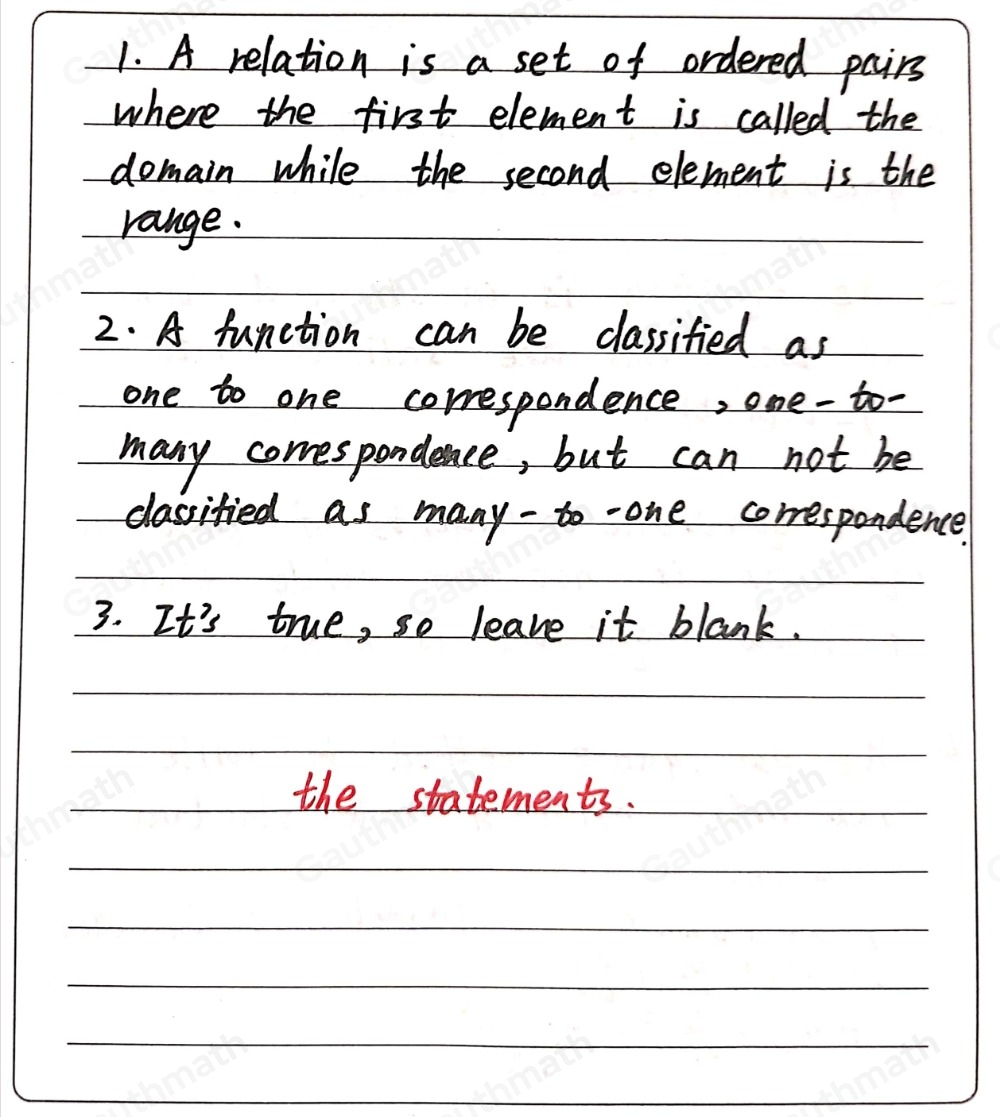 1. A relation is a set of ordered pairs
where the first element is called the
domain while the second element is the
range.
2. A function can be classified as
one to one correspondence, one-to-
many correspondence, but can not be
classified as many-to-one correspondence.
3. It's true, so leave it blank.
the statements.
Gauthmath